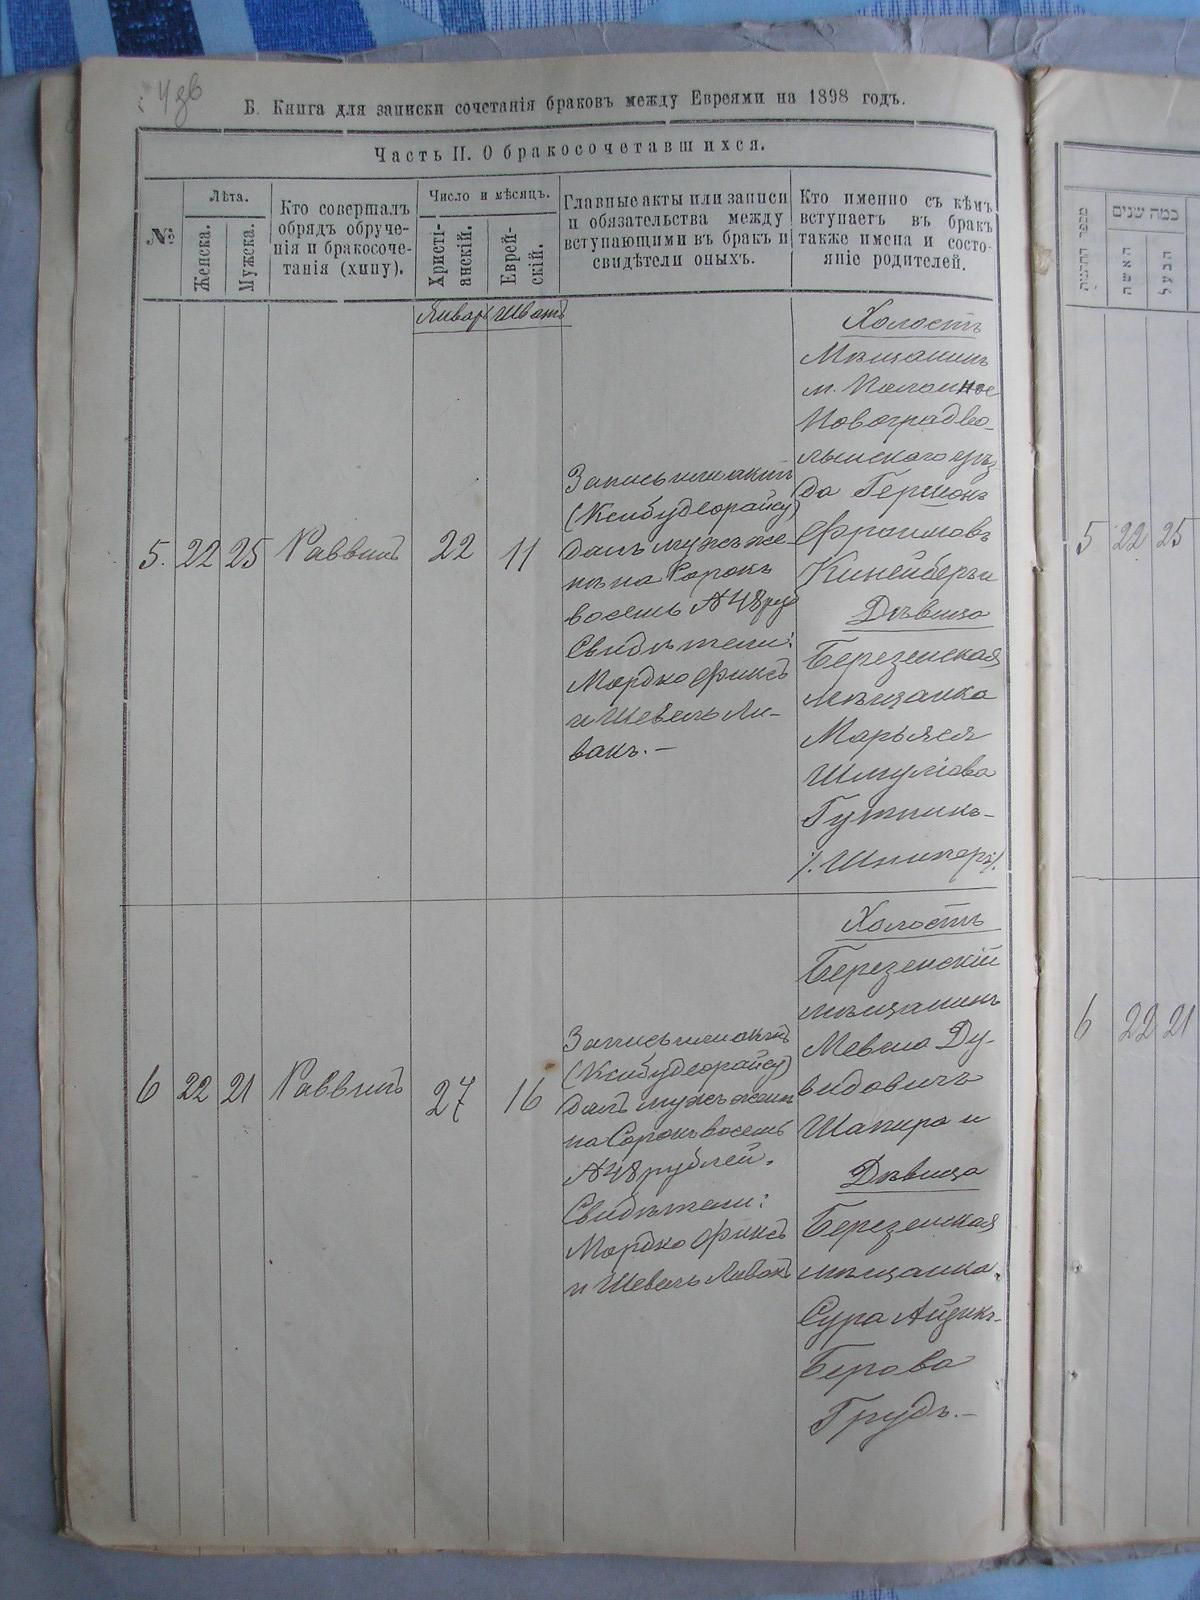 Б. Книга для записки сочетанія браковъ между Евреями на 1898 годъ.
Часть II. О бракосочетавшихся.
№
Лѣта.
Женска.
Мужска.
Кто совершалъ
обрядъ обруче-
нія и бракосоче-
танія (хипу).
Число и мѣсяцъ.
Христі-
анскій.
Еврей-
скій.
Главные акты или записи
и обязательства между
вступающими въ бракъ и
свидѣтели оныхъ.
Кто именно съ кѣмъ
вступаетъ въ бракъ
также имена и состо-
яніе родителей.
Январь
Шватъ
5.
22
25
Раввинъ
22
11
Запись или актъ
(Ксибудеорайсу)
далъ мужъ же-
нѣ на Сорокъ
восемь № 48 руб
Свидѣтели:
Мордко Финкъ
и Шевель Ли-
вакъ. —
Холостъ
Мѣщанинъ
м. Полонное
Новоградво-
лынскаго уѣз-
да Гершонъ
Фроимовъ
Кинейберъ и
Дѣвица
Березенская
мѣщанка
Марьяся
Шмулiова
Гутникъ-
/. Шниперъ/.
6
22
21
Раввинъ
27
16
Запись или актъ
(Ксибудеорайсу)
далъ мужъ женѣ
на Сорокъ восемь
№ 48 рублей.
Свидѣтели:
Мордко Финкъ
и Шевель Ливакъ
Холостъ
Березенскій
мѣщанинъ
Мевша Ду-
видовичъ
Шапира и
Дѣвица
Березенская
мѣщанка
Сура Айзикъ-
Берова
Грудъ. —
מספר החתונות
כמה שנים
האשה
הבעל
5
22
25
6
22
21